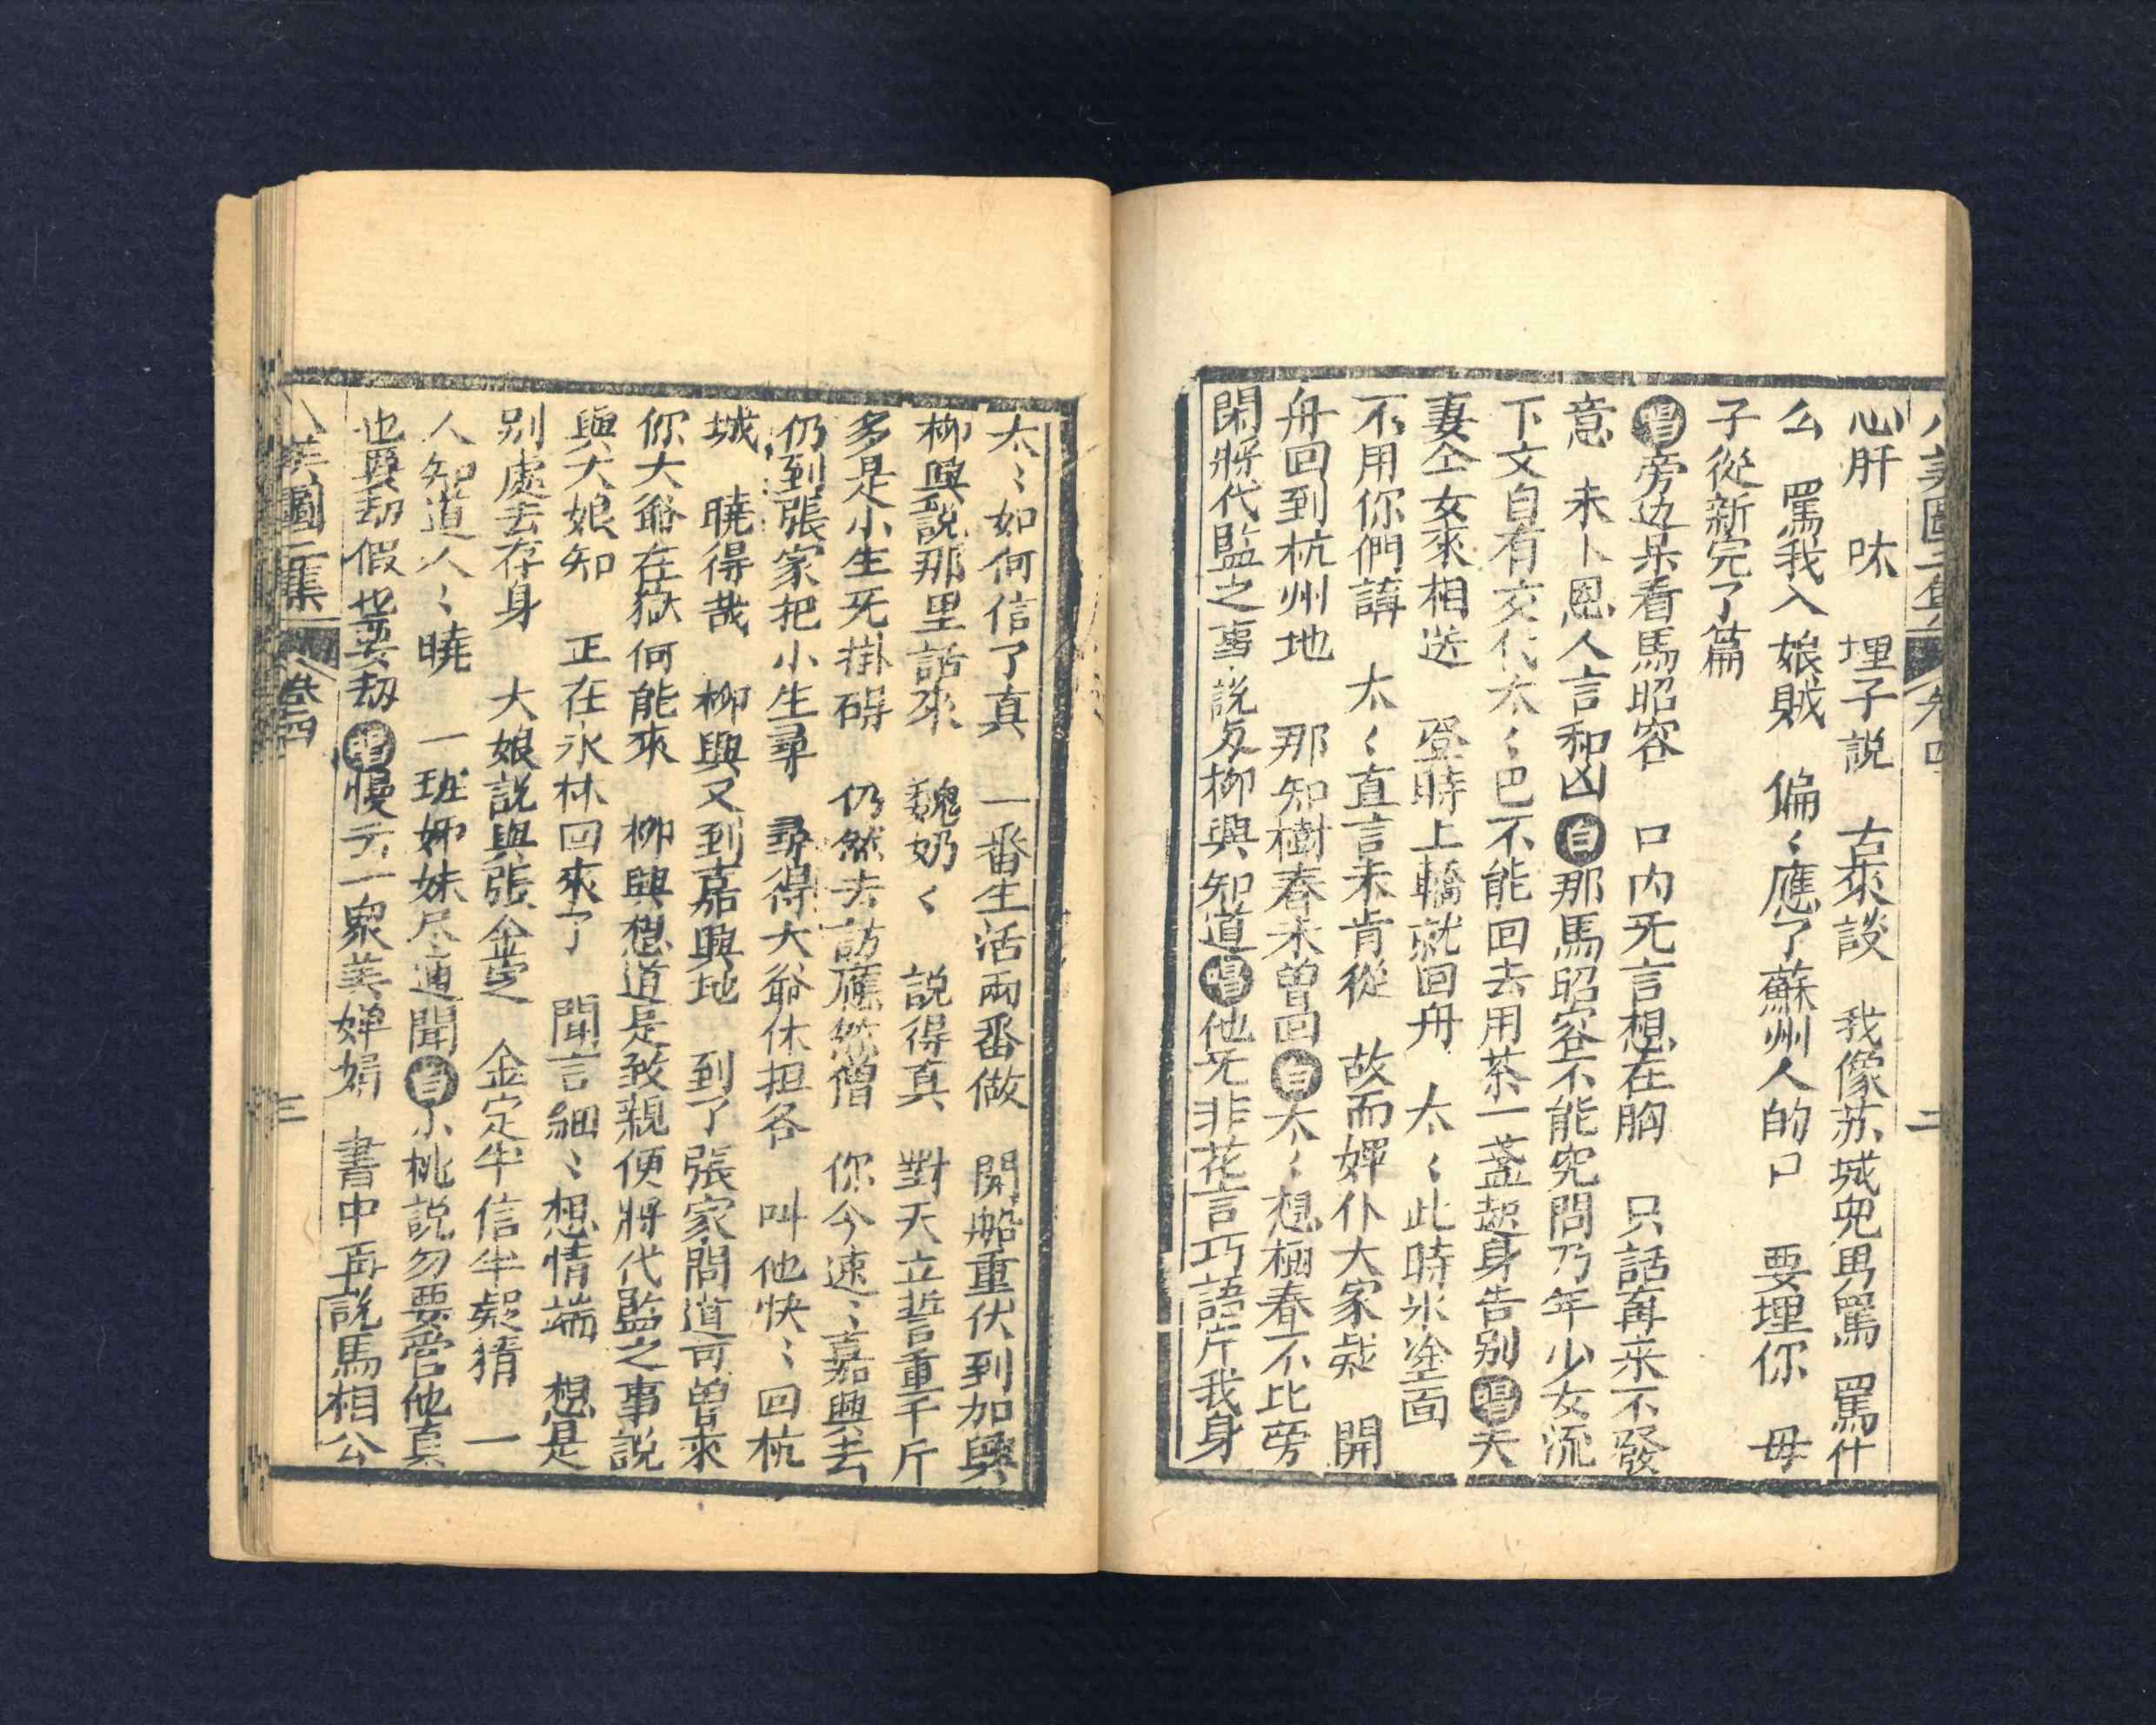 八美圖二集 卷四 二
心肝 呔 埋子說 古來談 我像苏城兕男罵 罵什
么 罵我入娘賊 偏〻應了蘇州人的口 要埋你 毋
子從新完了篇
唱旁边呆看馬昭容 口內旡言想在胸 只話再来不發
意 未卜恩人言和凶 白那馬昭容不能究問乃年少女流
下文自有交代太〻巴不能回去用茶一盞起身告别唱夫
妻仝女來相送 登時上轎就回舟 太〻此時氷塗面
不用你們講 太〻直言未肯從 故而婢仆大家 開
舟回到杭州地 那知樹春未曾回白太〻想栖春不比旁
閑將代監之事說反柳興知道唱他旡非花言巧語斤我身
太〻如何信了真 一番生活兩番做 開船重伏到加興
柳興說那里話來 魏奶〻 說得真 對天立誓重千斤
多是小生旡掛碍 仍然去訪應然僧 你今速〻嘉興去
仍到張家把小生尋 尋得大爺休担各 叫他快〻回杭
城 曉得哉 柳興又到嘉興地 到了張家問道可曽來
你大爺在獄何能來 柳興想道是致親便將代監之事說
與大娘知 正在氷林回來了 聞言細〻想情端 想是
别處去存身 大娘說與張金定 金定半信半疑猜 一
人知道人〻曉 一班姉妹尽通聞白小桃説勿要管他真
也要劫假也要劫唱慢云一衆美婵娟 書中再說馬相公
八美圖二集 卷四 三